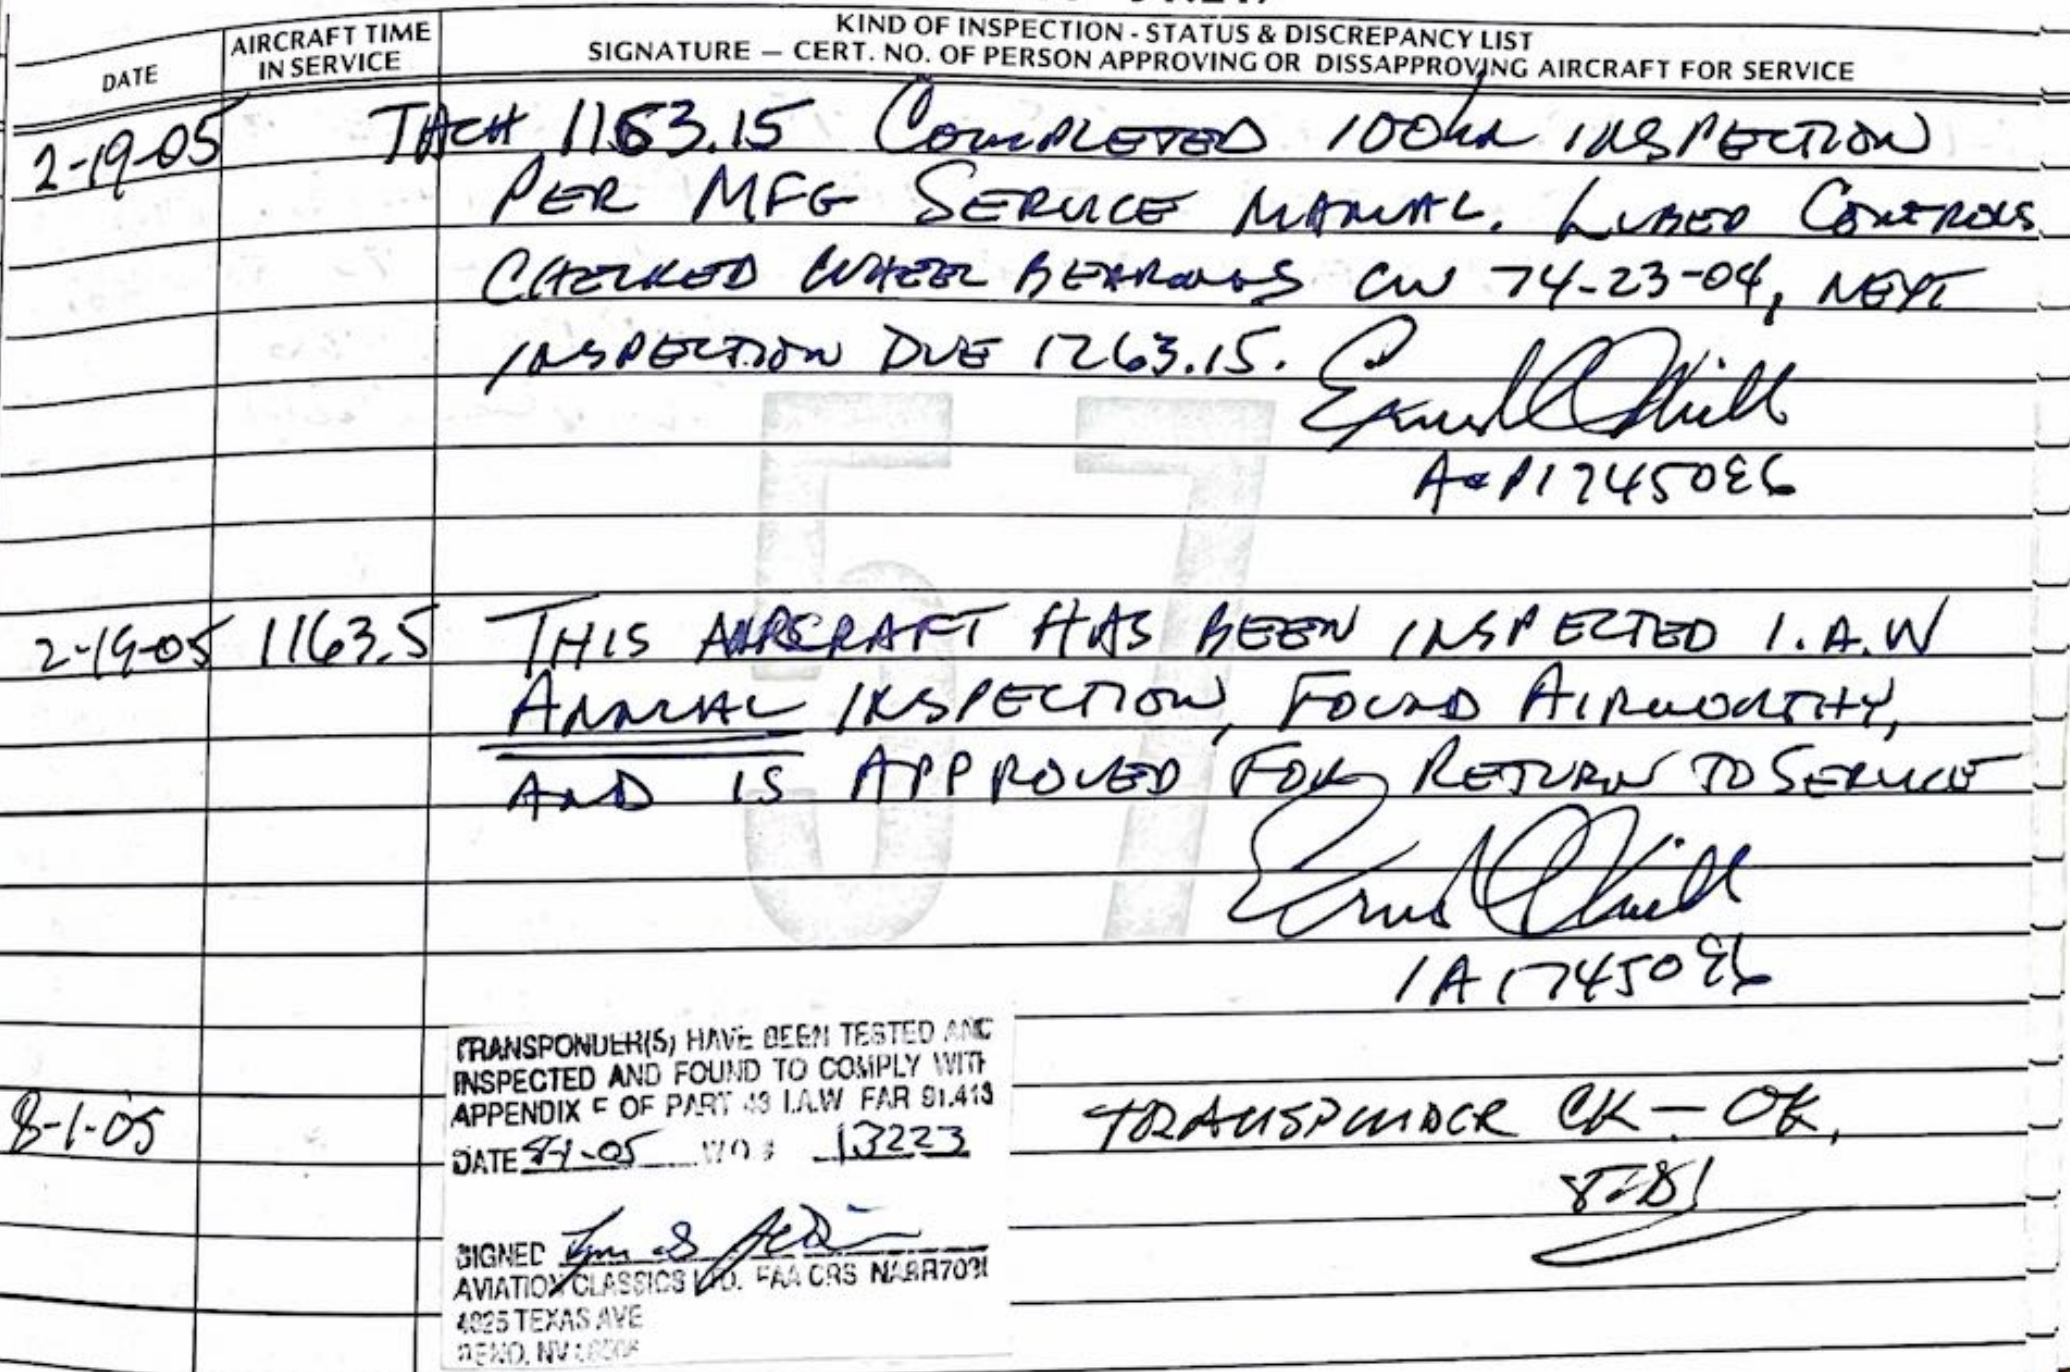 DATE
AIRCRAFT TIME
IN SERVICE
KIND OF INSPECTION - STATUS & DISCREPANCY LIST
SIGNATURE — CERT. NO. OF PERSON APPROVING OR DISSAPPROVING AIRCRAFT FOR SERVICE
2-19-05 TACH 1163.15 COMPLETED 100HR INSPECTION
PER MFG SERVICE MANUAL. LUBED CONTROLS
CHECKED WHEEL BEARINGS CW 74-23-04, NEXT
INSPECTION DUE 1263.15.
A&P 1745086
57
2-19-05 1163.5 THIS AIRCRAFT HAS BEEN INSPECTED I.A.W
ANNUAL INSPECTION, FOUND AIRWORTHY,
AND IS APPROVED FOR RETURN TO SERVICE
IA 1745086
TRANSPONDER(S) HAVE BEEN TESTED AND
INSPECTED AND FOUND TO COMPLY WITH
APPENDIX F OF PART 43 I.A.W FAR 91.413
8-1-05 TRANSPONDER CK - OK.
DATE 8-1-05 WO # 13223
SIGNED
AVIATION CLASSICS LTD. FAA CRS
4825 TEXAS AVE
RENO, NV